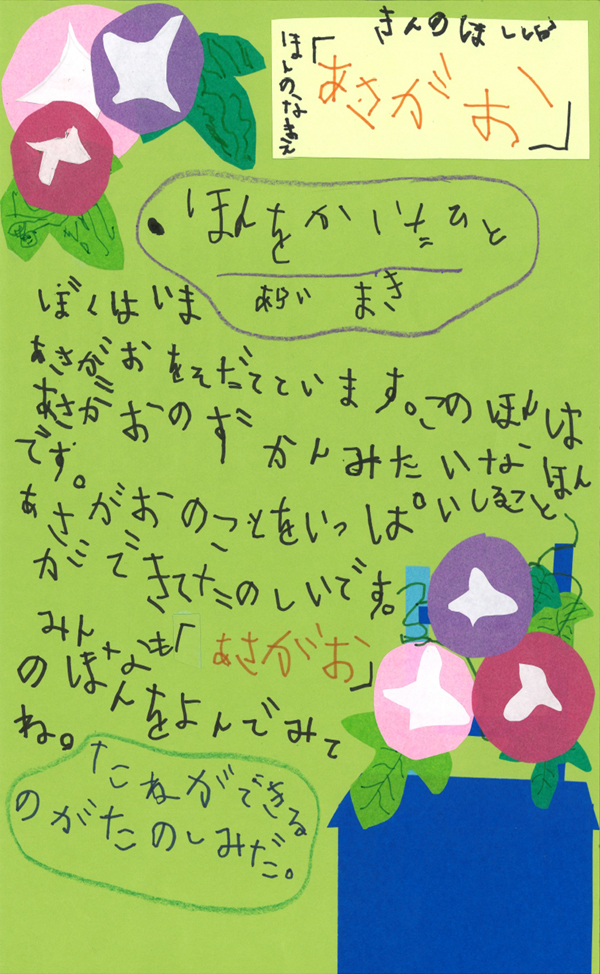 きんのほししょう
ほんのなまえ
「あさがお」
ほんをかいたひと
あらい まき
ぼくはいま
あさがおをそだてています。このほんは
あさがおのずかんみたいなほん
です。
あさがおのことをいっぱいしること
ができてたのしいです。
みんなも「あさがお」
のほんをよんでみて
ね。
たねができる
のがたのしみだ。